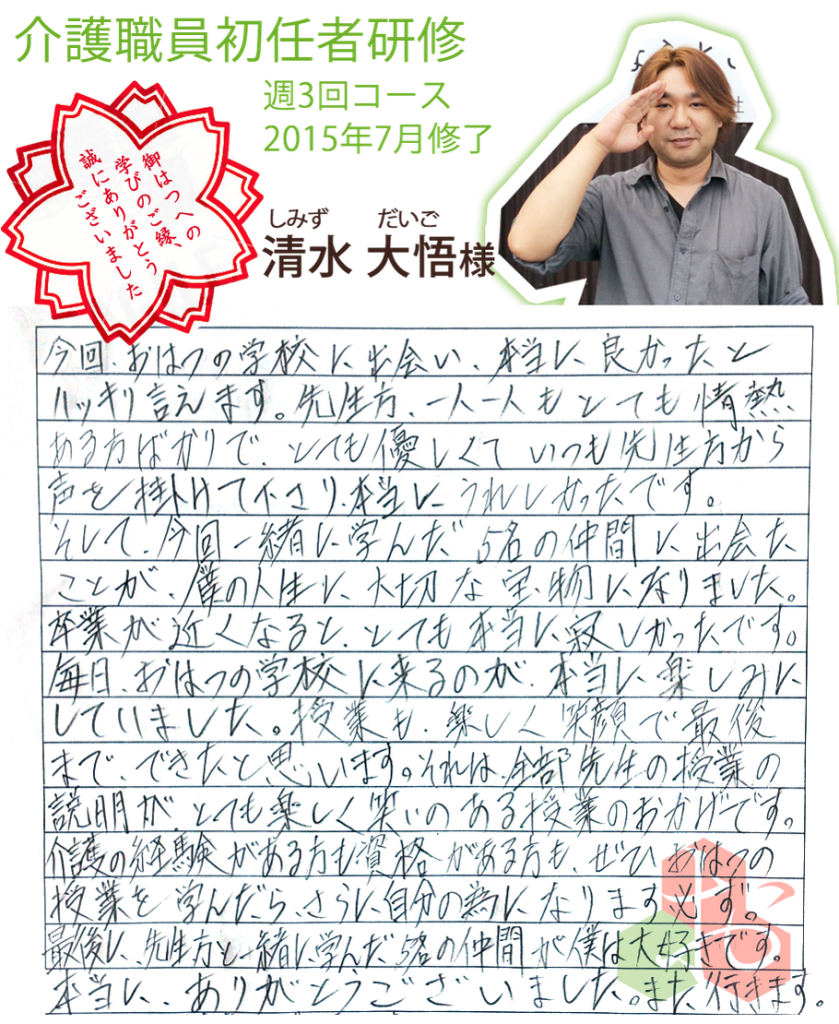 介護職員初任者研修
週3回コース
2015年7月修了
御はつへの
学びのご縁、
誠にありがとう
ございました
しみず だいご
清水 大悟様
社
今回、おはつの学校に出会い、本当に良かったと
ハッキリ言えます。先生方、一人一人もとても情熱
ある方ばかりで、とても優しくていつも先生方から
声を掛けて下さり、本当にうれしかったです。
そして、今回一緒に学んだ5名の仲間に出会た
ことが、僕の人生に大切な宝物になりました。
卒業が近くなると、とても本当に寂しかったです。
毎日、おはつの学校に来るのが、本当に楽しみに
していました。授業も、楽しく笑顔で最後
まで、できたと思います。それは、全部先生の授業の
説明が、とても楽しく笑いのある授業のおかげです。
介護の経験がある方も資格がある方も、ぜひおはつの
授業を学んだら、さらに自分の為になります必ず。
最後に、先生方と一緒に学んだ5名の仲間が僕は大好きです。
本当に、ありがとうございました。また、行きます。